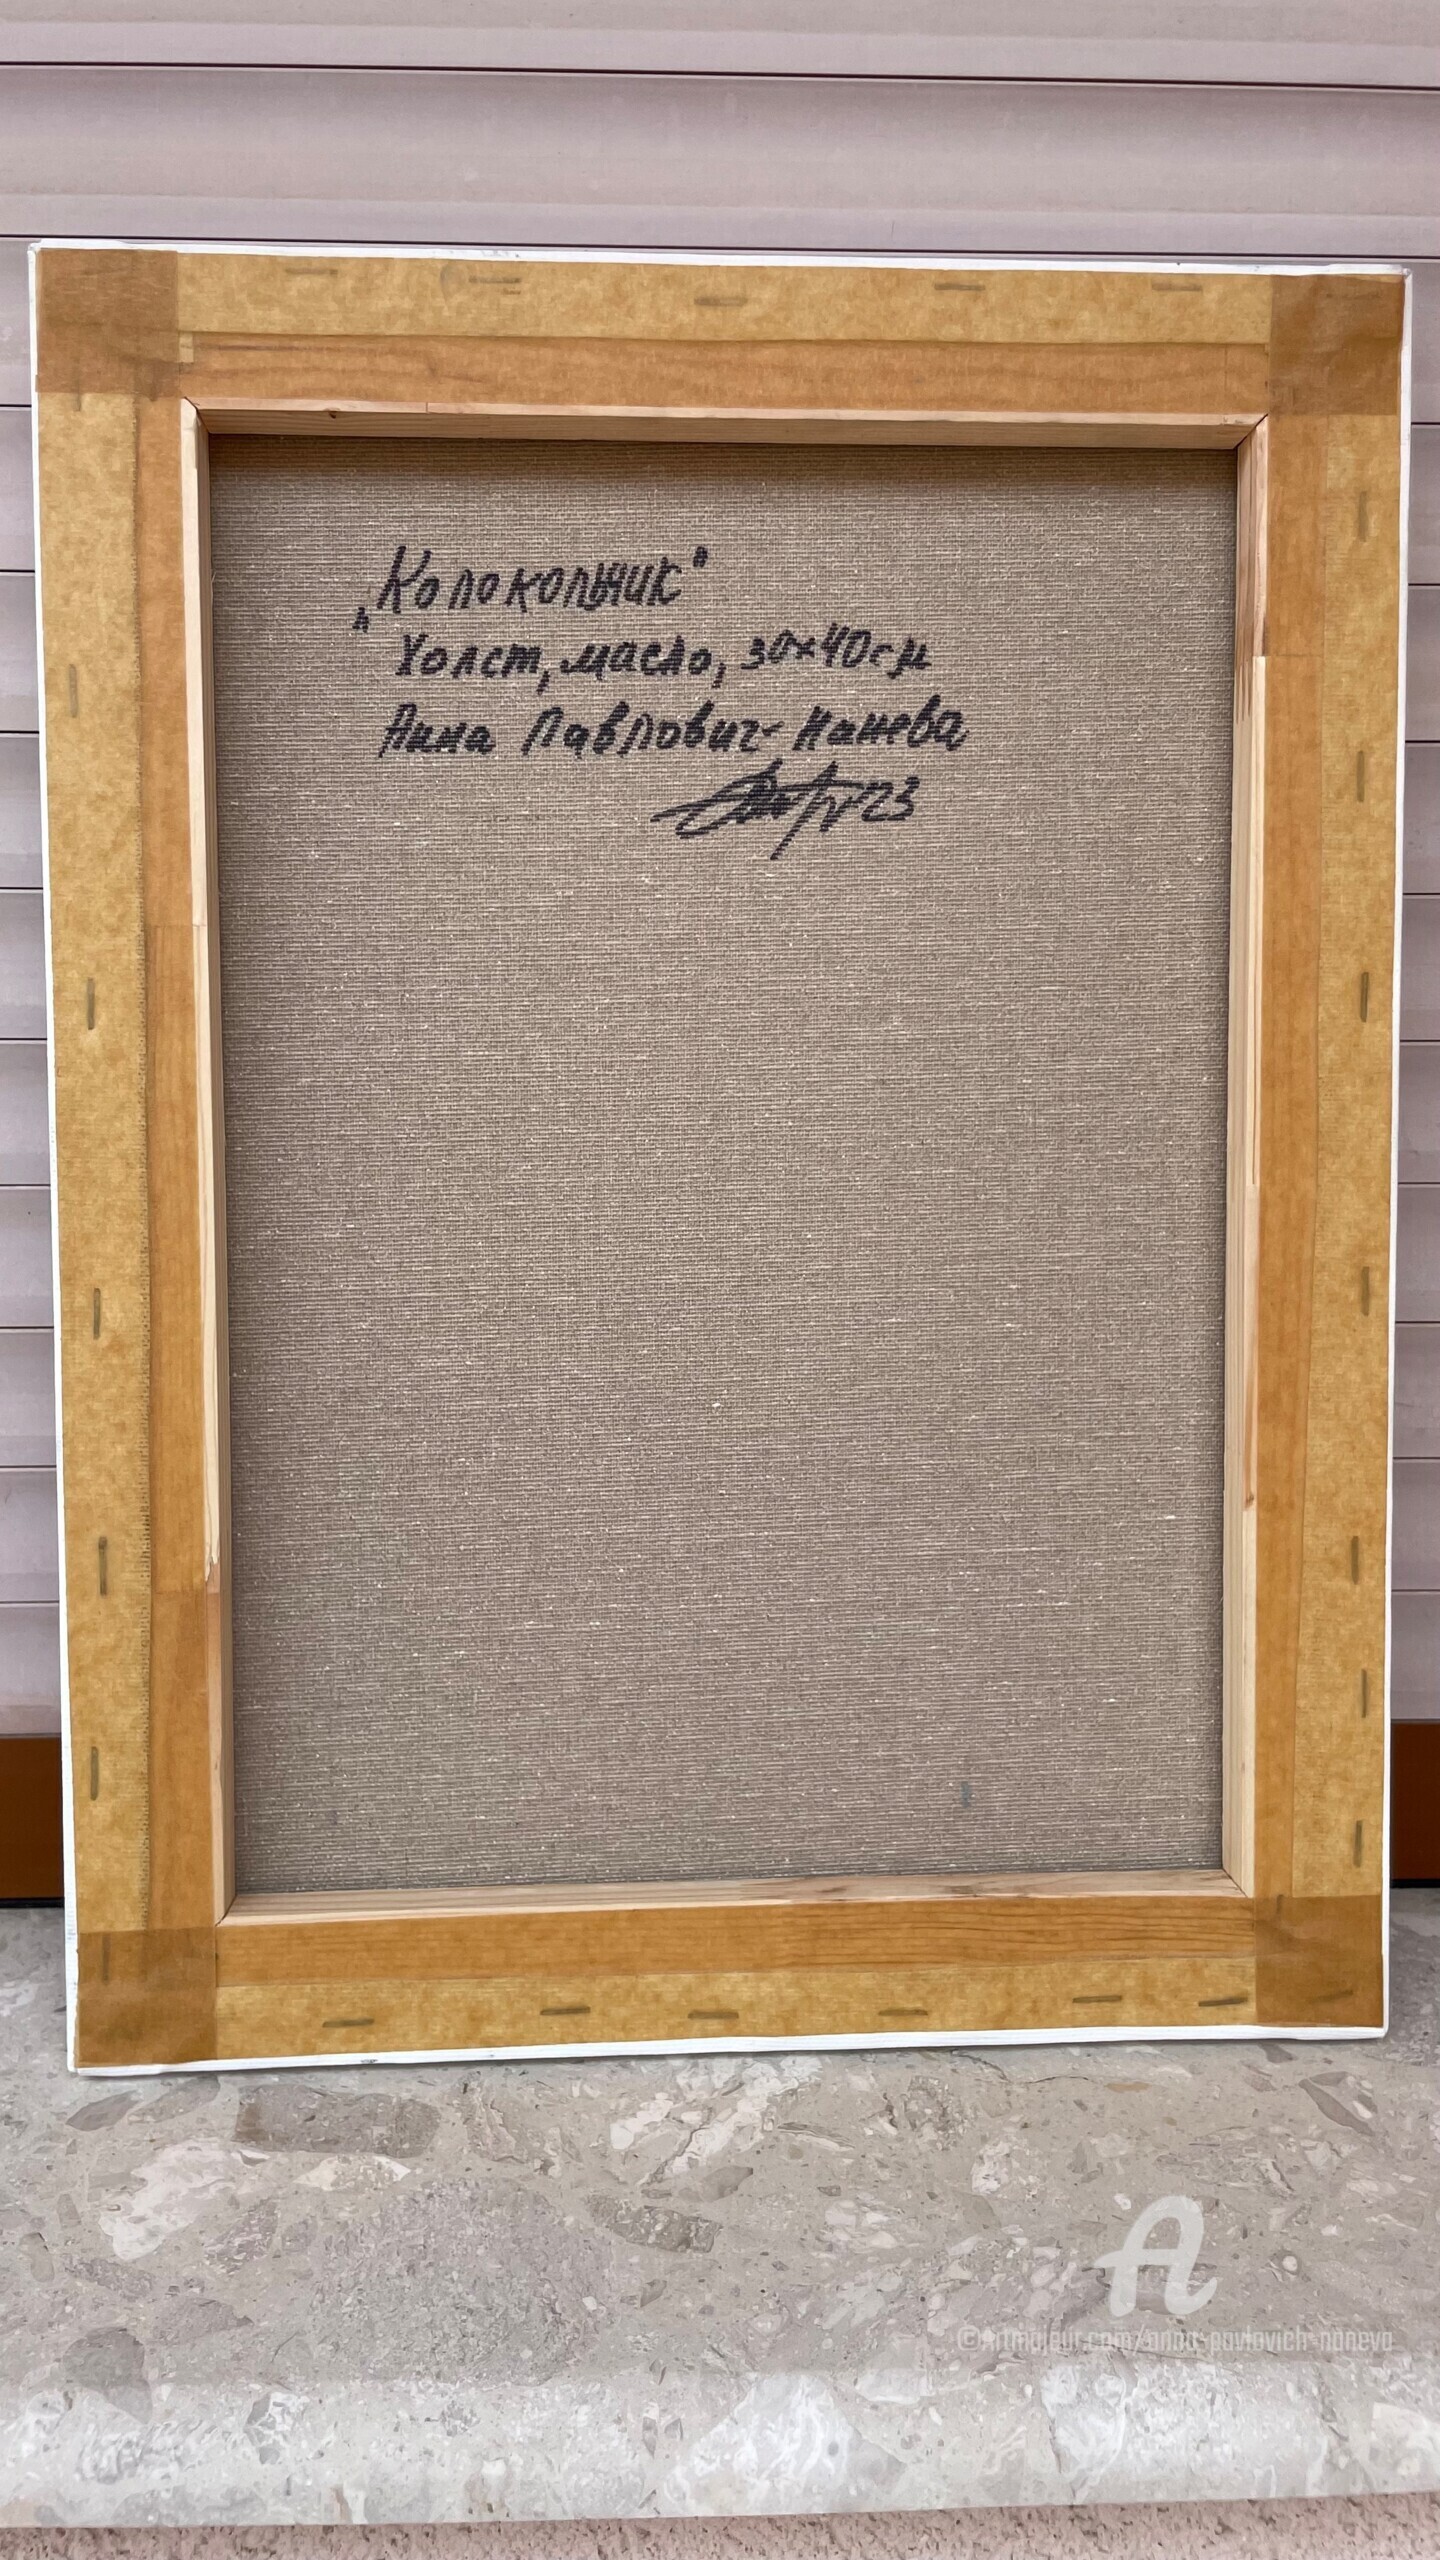 „Колокольчик"
Холст, масло, 30x40см
Анна Павлович-Нанева
23
A
©Artmajeur.com/anna-pavlovich-naneva